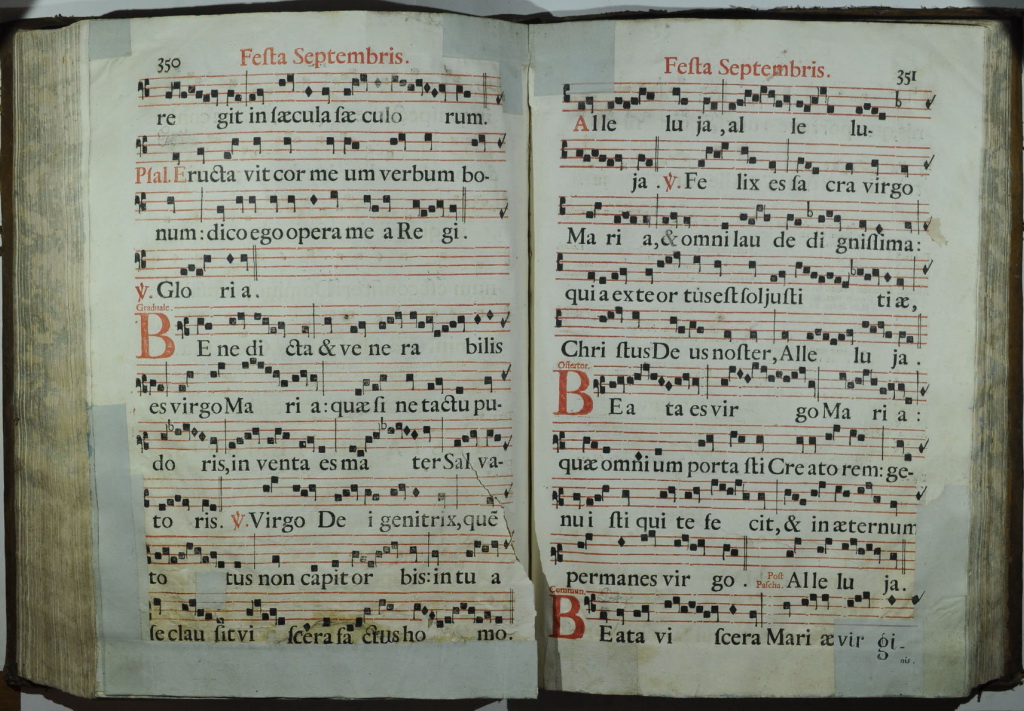 350
Feſta Septembris.
re git in ſæcula ſæ culo rum.
Pſal. Eructa vit cor me um verbum bo-
num: dico ego opera me a Re gi.
℣. Glo ri a.
Graduale.
BE ne di cta & ve ne ra bilis
es virgo Ma ri a: quæ ſi ne tactu pu-
do ris, in venta es ma ter Sal va-
to ris. ℣. Virgo De i genitrix, quẽ
to tus non capit or bis: in tu a
ſe clau ſit vi ſcera fa ctus ho mo.
Feſta Septembris.
351
Alle lu ja, al le lu-
ja. ℣. Fe lix es ſa cra virgo
Ma ri a, & omni lau de di gniſſima:
qui a ex te or tus eſt ſol juſti ti æ,
Chri ſtus De us noſter, Alle lu ja.
Offertor.
BEa ta es vir go Ma ri a:
quæ omni um porta ſti Cre ato rem: ge-
nu i ſti qui te fe cit, & in æternum
permanes vir go. Poſt Paſcha. Alle lu ja.
Commun.
BEata vi ſcera Mari æ vir gi-
nis.